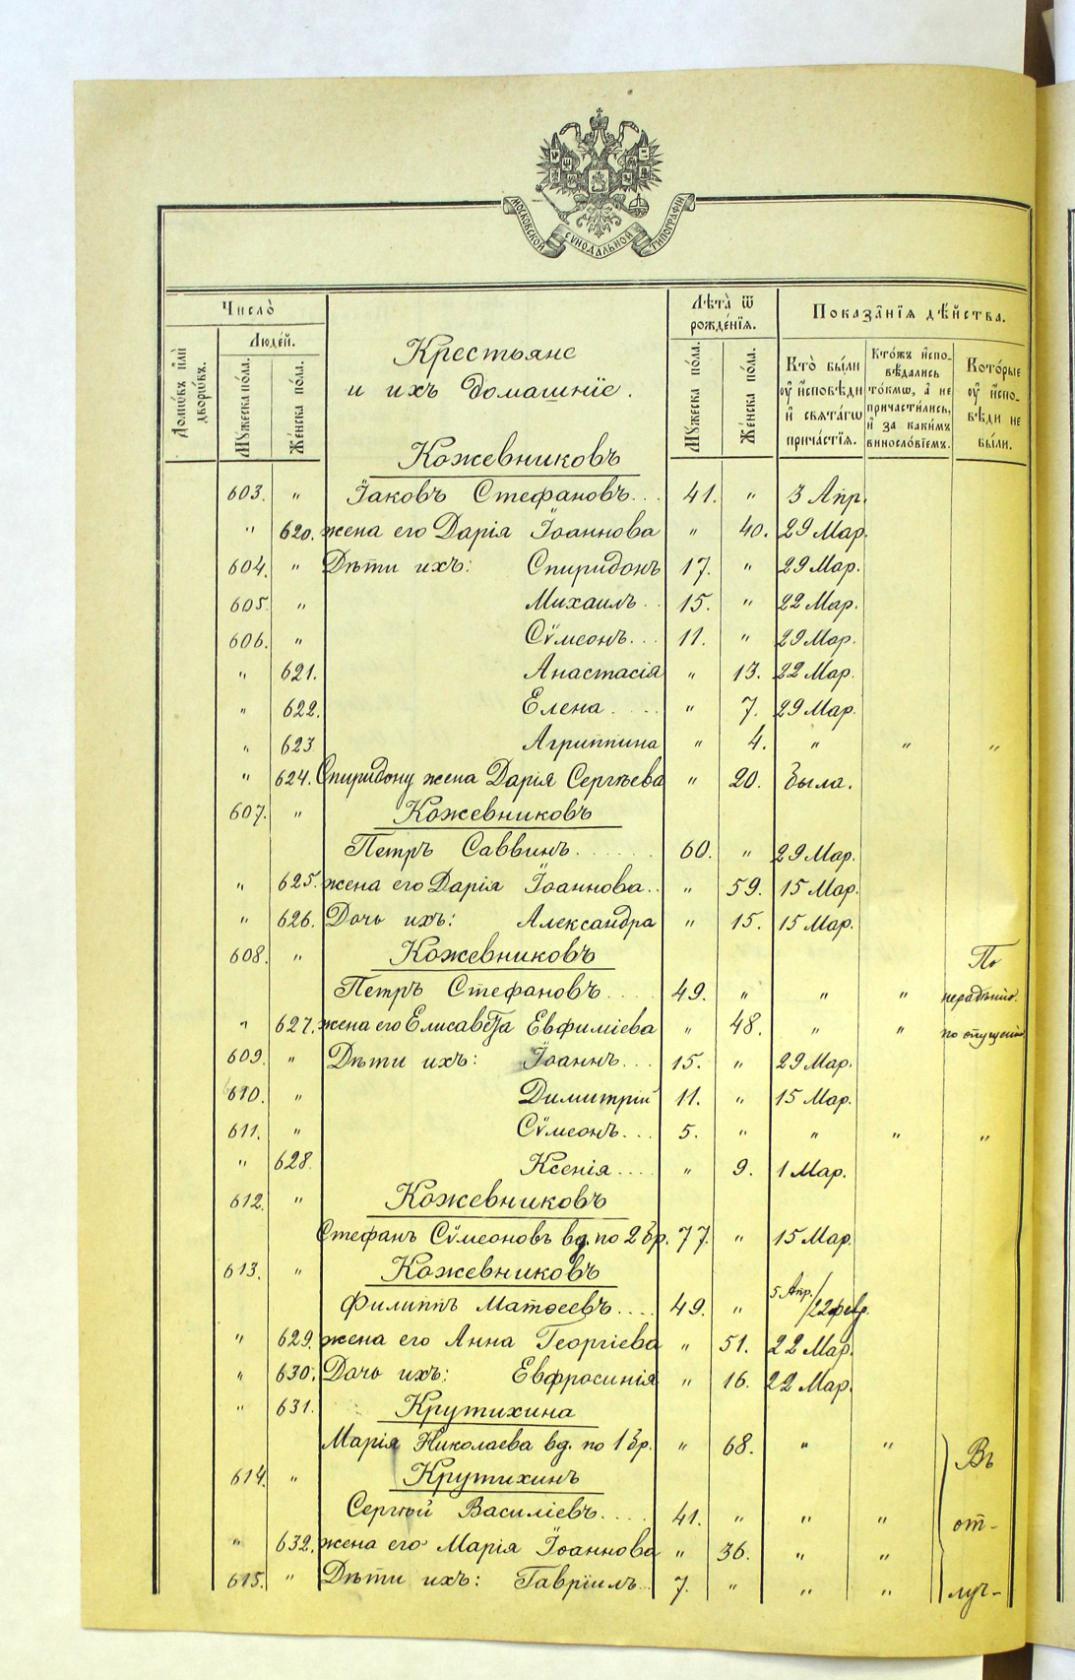 МОСКОВСКОЙ СѴНОДАЛЬНОЙ ТИПОГРАФІИ
Число̀
Людей.
Домѡвъ и҆лѝ дворѡвъ.
Мꙋ́жеска по́ла.
Же́нска по́ла.
Крестьяне
и ихъ домашніе.
Лѣ́та ѿ рожде́нїѧ.
Мꙋ́жеска по́ла.
Же́нска по́ла.
Показа̑нїѧ дѣ́йства.
Кто̀ бы́ли ᲂу҆ и҆сповѣди и҆ свѧта́гѡ прича́стїѧ.
Кто́жъ и҆сповѣ́дались то́кмѡ, а҆ не причасти́лись, и҆ за каки́мъ винословїемъ.
Кото́рые ᲂу҆ и҆сповѣди не бы́ли.
Кожевниковъ
603. " Іаковъ Стефановъ... 41. " 3 Апр.
" 620. жена его Дарія Іоаннова " 40. 29 Мар.
604. " Дѣти ихъ: Спиридонъ 17. " 29 Мар.
605. " Михаилъ.. 15. " 22 Мар.
606. " Сѵмеонъ... 11. " 29 Мар.
" 621. Анастасія " 13. 22 Мар.
" 622. Елена.... " 7. 29 Мар.
" 623 Агриппина " 4. " " "
" 624. Спиридону жена Дарія Сергѣева " 20. Была.
607. " Кожевниковъ
Петръ Саввинъ....... 60. " 29 Мар.
" 625. жена его Дарія Іоаннова.. " 59. 15 Мар.
" 626. Дочь ихъ: Александра " 15. 15 Мар.
608. " Кожевниковъ По
Петръ Стефановъ.... 49. " " " нерадѣнію.
" 627. жена его Елисавета Евфиміева " 48. " " по опущенію
609. " Дѣти ихъ: Іоаннъ... 15. " 29 Мар.
610. " Димитрій 11. " 15 Мар.
611. " Сѵмеонъ... 5. " " " "
" 628. Ксенія.... " 9. 1 Мар.
612. " Кожевниковъ
Стефанъ Сѵмеоновъ вд. по 2 бр. 77. " 15 Мар.
613. " Кожевниковъ
Филиппъ Матѳеевъ.... 49. " 5 Апр./22 февр.
" 629. жена его Анна Георгіева " 51. 22 Мар.
" 630. Дочь ихъ: Евфросинія " 16. 22 Мар.
" 631. Крутихина
Марія Николаева вд. по 1 бр. " 68. " " Въ
614. " Крутихинъ
Сергѣй Василіевъ.... 41. " " " от-
" 632. жена его Марія Іоаннова " 36. " "
615. " Дѣти ихъ: Гавріилъ.. 7. " " " луч-